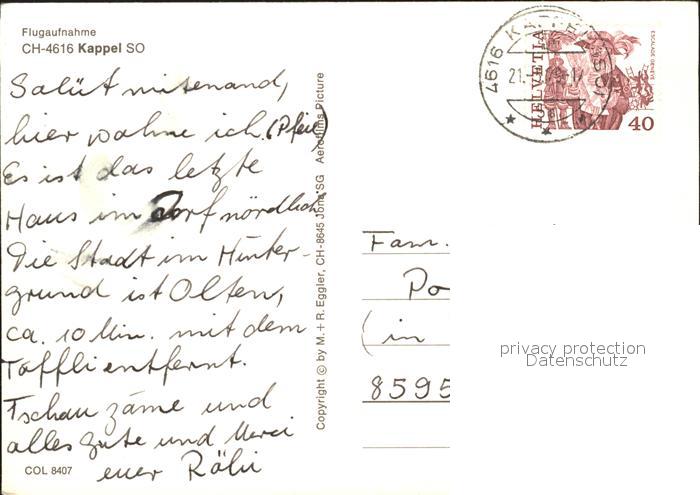 Flugaufnahme
CH-4616 Kappel SO
Salüt mitenand,
hier wohne ich. (Pfeil)
Es ist das letzte
Haus im Dorf nördlich
Die Stadt im Hinter-
grund ist Olten,
ca. 10 Min. mit dem
Töffli entfernt.
Tschau zäme und
alles Gute und Merci
euer Röbi
COL 8407
Copyright © by M. + R. Eggler, CH-8645 Jona SG Aerofilms Picture
4616 KAPPEL
21.
HELVETIA
ESCALADE GENÈVE
40
Fam.
Po
(in
8595
privacy protection
Datenschutz